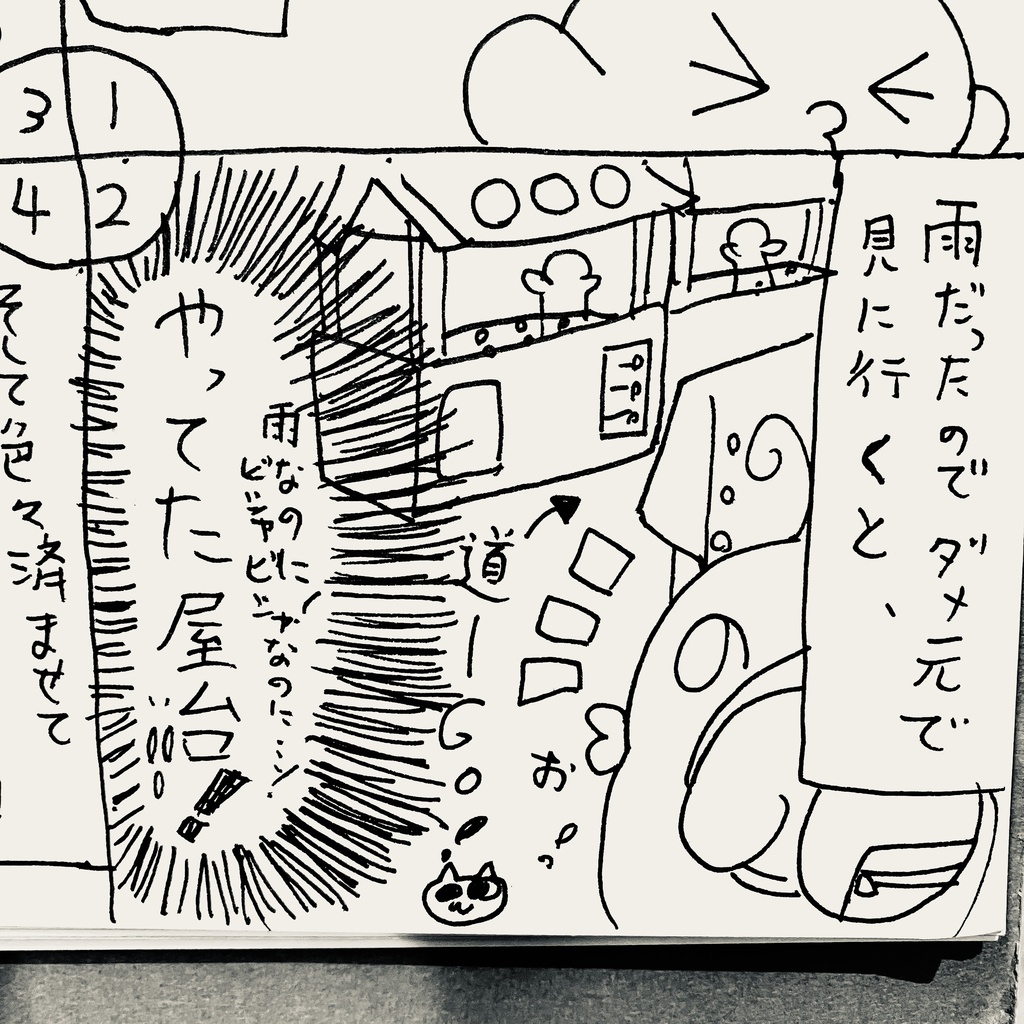 3 1
4 2
雨だったのでダメ元で
見に行くと、
道
お
雨なのに
ビジャビジャなのに…
やってた屋台!!
そして色々済ませて